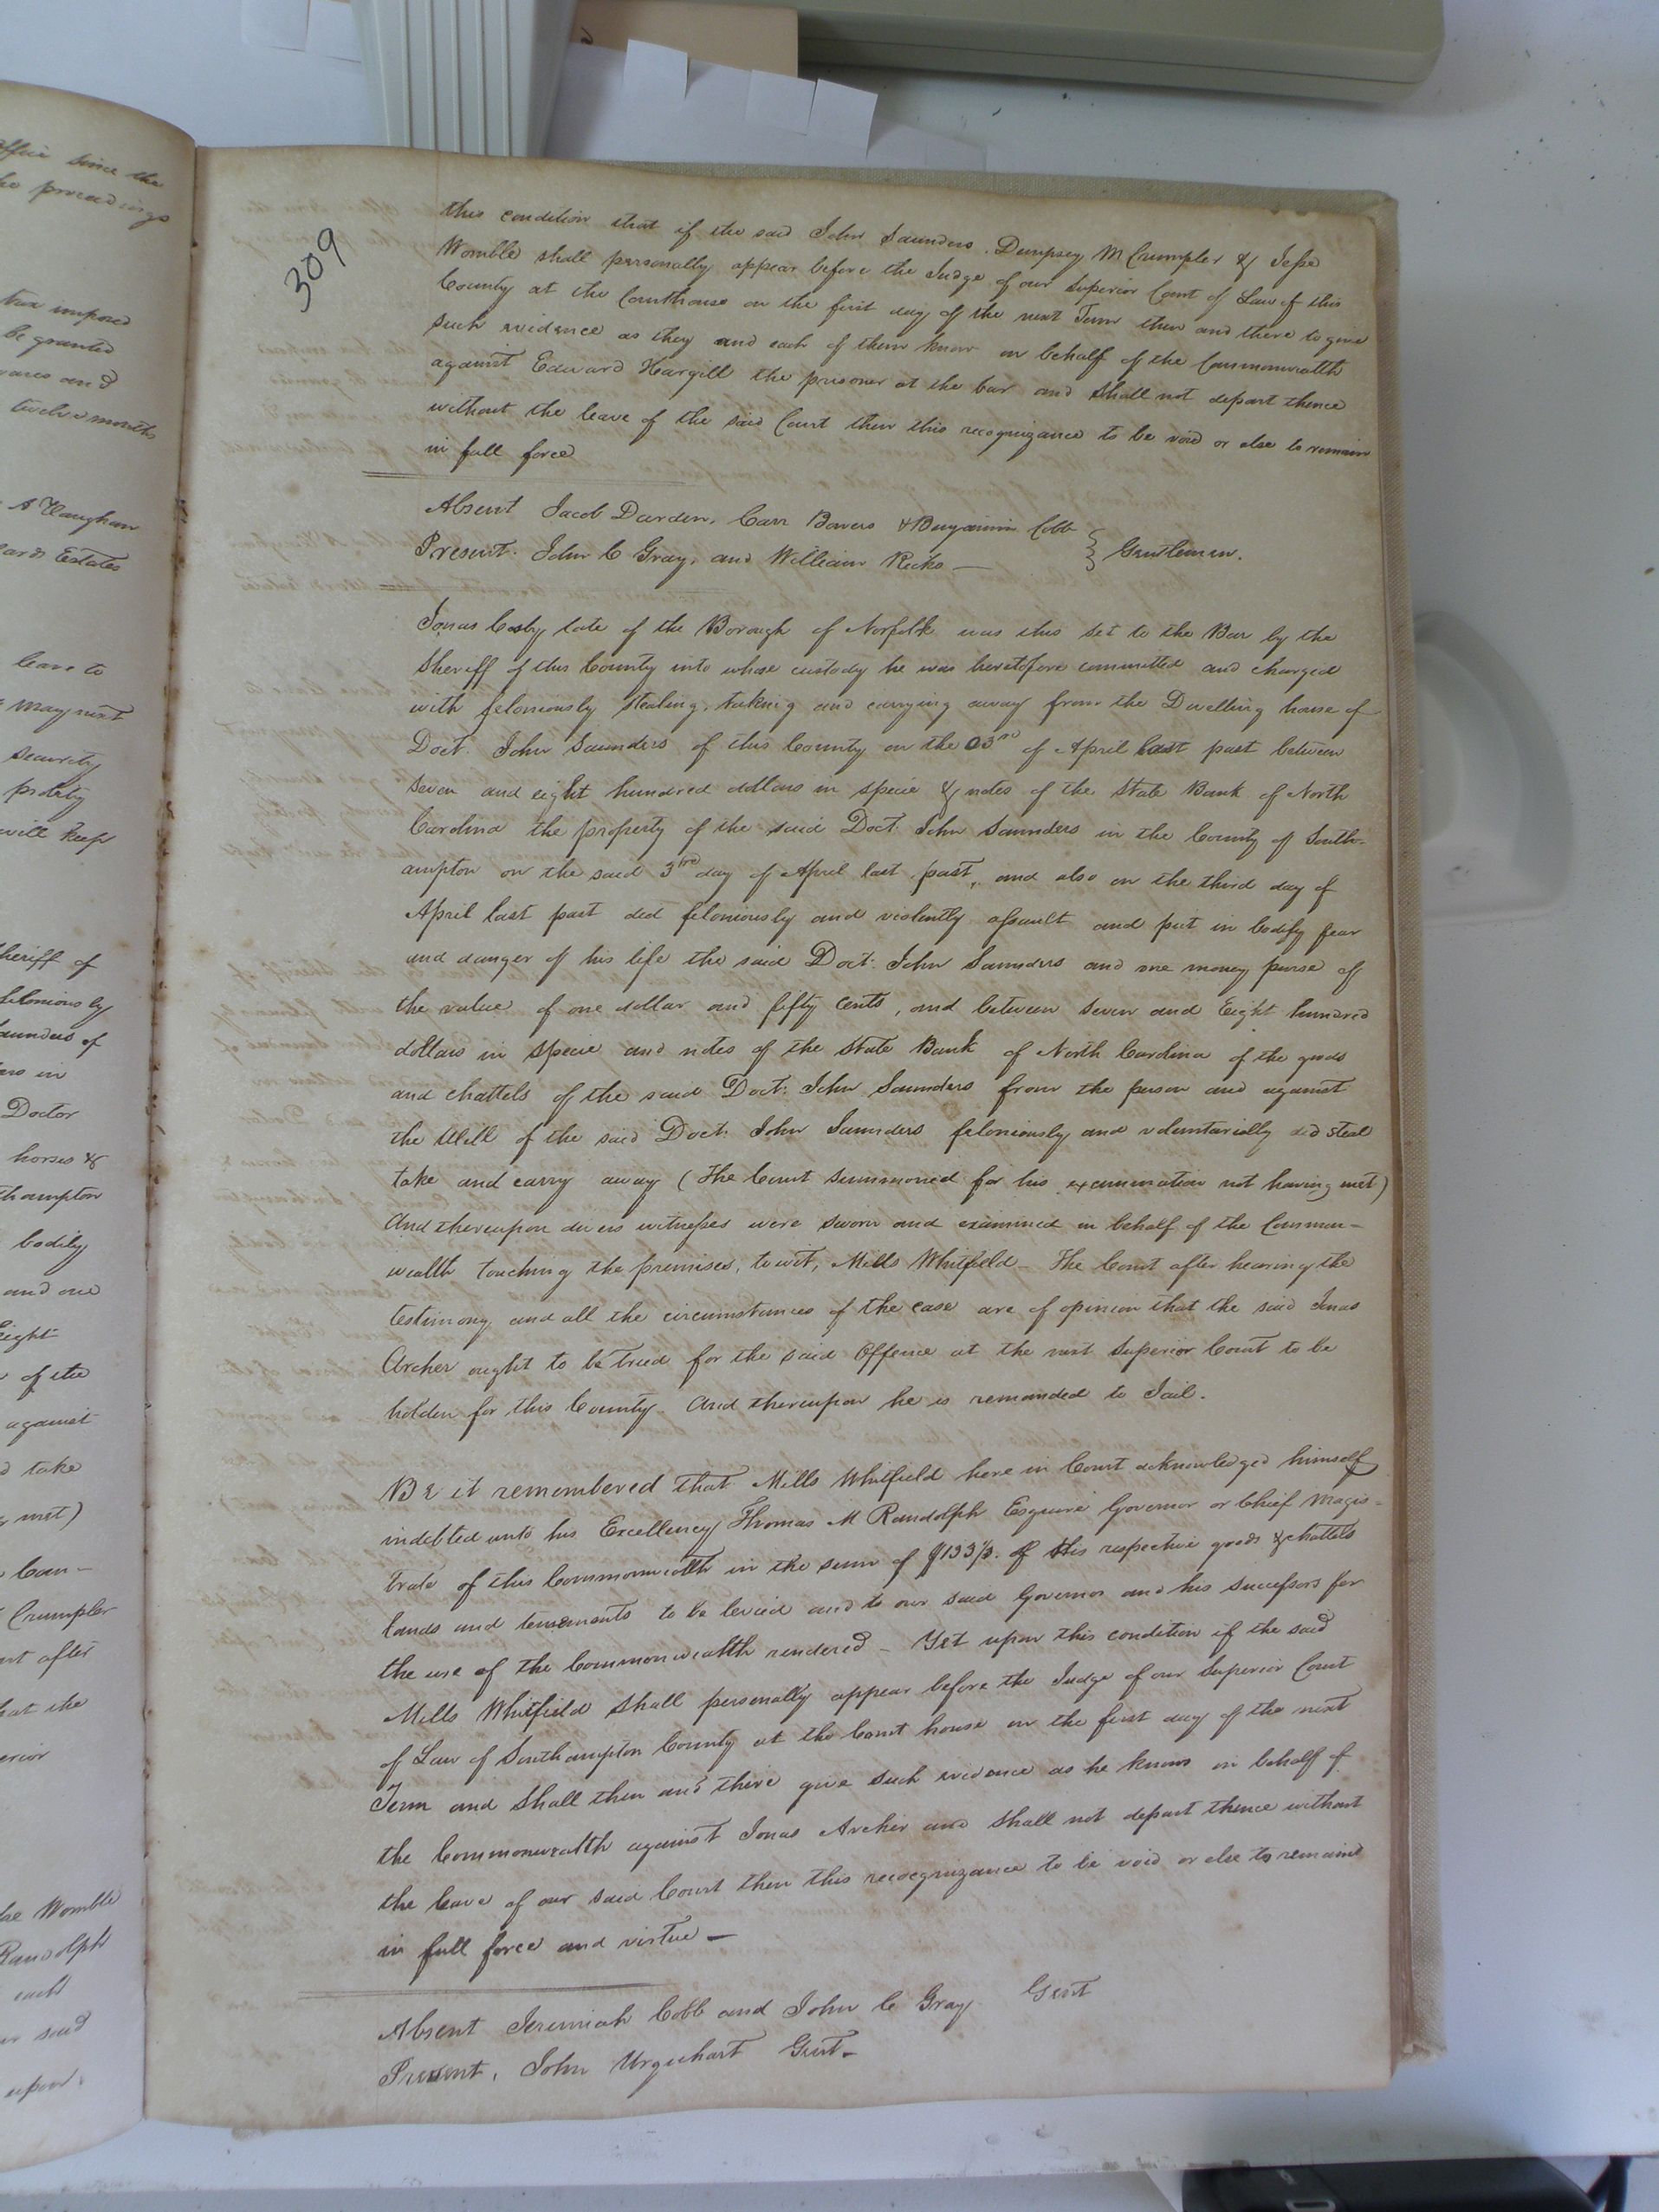 309
this condition that if the said John Saunders. Dempsey M Crumpler & Jesse
Womble shall personally appear before the Judge of our Superior Court of Law of this
County at the Courthouse on the first day of the next Term then and there to give
such evidence as they and each of them know on behalf of the Commonwealth
against Edward Hargill the prisoner at the bar and shall not depart thence
without the leave of the said Court then this recognizance to be void or else to remain
in full force
Absent Jacob Darden, Carr Bowers & Benjamin Cobb
Present. John C Gray, and William Ricks — Gentlemen.
Jonas Cosby late of the Borough of Norfolk was this set to the Bar by the
Sheriff of this County into whose custody he was heretofore committed and charged
with feloniously stealing, taking and carrying away from the Dwelling house of
Doct. John Saunders of this County on the 3rd of April last past between
seven and eight hundred dollars in specie & notes of the State Bank of North
Carolina the property of the said Doct. John Saunders in the County of South-
ampton on the said 3rd day of April last past, and also on the third day of
April last past did feloniously and violently assault and put in bodily fear
and danger of his life the said Doct. John Saunders and one money purse of
the value of one dollar and fifty cents, and between seven and Eight hundred
dollars in specie and notes of the State Bank of North Carolina of the goods
and chattels of the said Doct. John Saunders from the person and against
the Will of the said Doct. John Saunders feloniously and voluntarially did steal
take and carry away (the Court summoned for his examination not having met)
And thereupon divers witnesses were sworn and examined in behalf of the Common-
wealth touching the premises, to wit, Mills Whitfield - The Court after hearing the
testimony and all the circumstances of the case are of opinion that the said Jonas
Archer ought to be tried for the said Offence at the next Superior Court to be
holden for this County. And thereupon he is remanded to Jail.
Be it remembered that Mills Whitfield here in Court acknowledged himself
indebted unto his Excellency Thomas M Randolph Esquire Governor or Chief Magis=
trate of this Commonwealth in the sum of $133⅓. of his respective goods & chattels
lands and tenements to be levied and to our said Governor and his successors for
the use of the Commonwealth rendered - Yet upon this condition if the said
Mills Whitfield shall personally appear before the Judge of our Superior Court
of Law of Southampton County at the Court house on the first day of the next
Term and shall then and there give such evidence as he knows in behalf of
the Commonwealth against Jonas Archer and shall not depart thence without
the leave of our said Court then this recognizance to be void or else to remaind
in full force and virtue —
Absent Jeremiah Cobb and John C Gray Gent
Present, John Urquhart Gent-